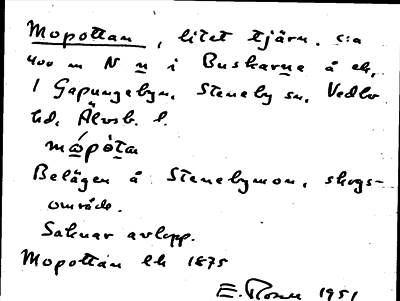 Mopottan, litet tjärn. c:a
400 m N n i Buskarna å ek.
1 Gapungebyn, Steneby sn, Vedbo
hd, Älvsb. l.
Belägen å Stenebymon, skogs-
område.
Saknar avlopp.
Mopottan ek 1875
E. 1951